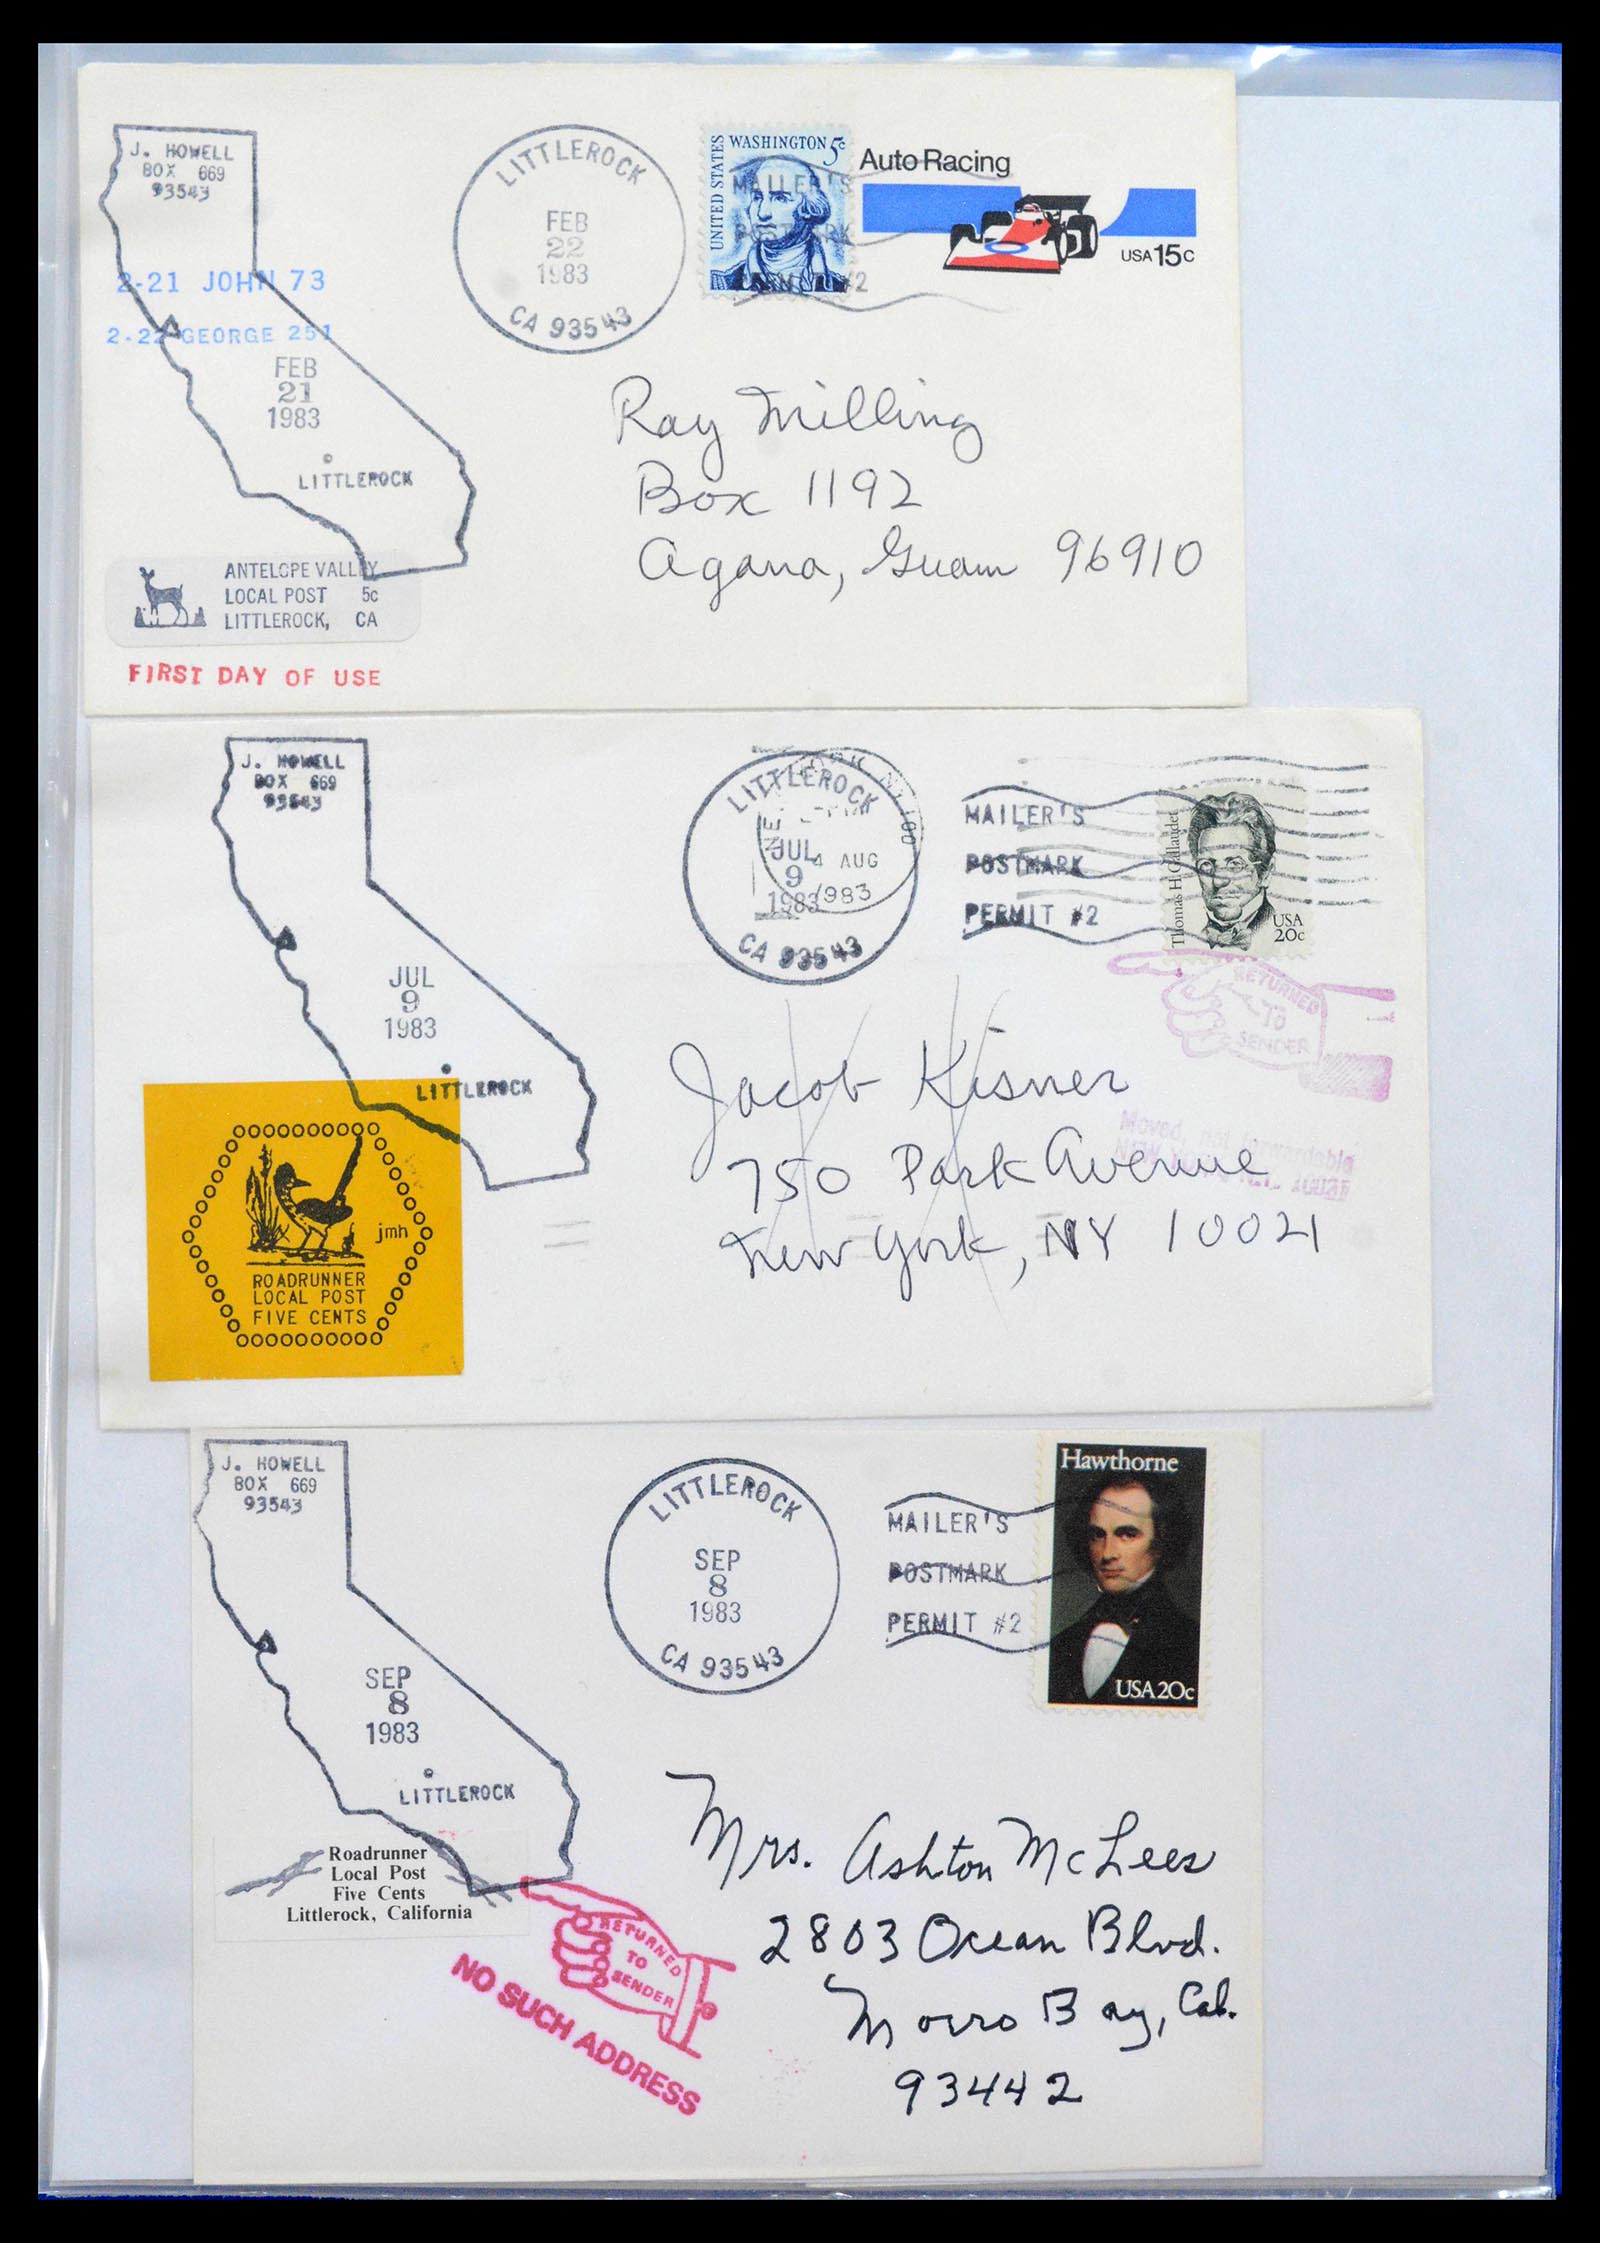 J. HOWELL
BOX 669
93543
2-21 JOHN 73
2-22 GEORGE 251
FEB
21
1983
LITTLEROCK
ANTELOPE VALLEY
LOCAL POST 5c
LITTLEROCK, CA
FIRST DAY OF USE
LITTLEROCK
FEB
22
1983
CA 93543
UNITED STATES
WASHINGTON 5c
MAILER'S
POSTMARK
PERMIT #2
Auto Racing
USA 15c
Ray Milling
Box 1192
Agana, Guam 96910
J. HOWELL
BOX 669
93543
JUL
9
1983
LITTLEROCK
jmh
ROADRUNNER
LOCAL POST
FIVE CENTS
LITTLEROCK
JUL
9
1983
CA 93543
4 AUG
1983
MAILER'S
POSTMARK
PERMIT #2
Thomas H. Gallaudet
USA
20c
RETURNED
TO
SENDER
Moved, not forwardable
Jacob Kisner
750 Park Avenue
New York, NY 10021
J. HOWELL
BOX 669
93543
SEP
8
1983
LITTLEROCK
Roadrunner
Local Post
Five Cents
Littlerock, California
LITTLEROCK
SEP
8
1983
CA 93543
MAILER'S
POSTMARK
PERMIT #2
Hawthorne
USA 20c
RETURNED
TO
SENDER
NO SUCH ADDRESS
Mrs. Ashton McLees
2803 Ocean Blvd.
Morro Bay, Cal.
93442